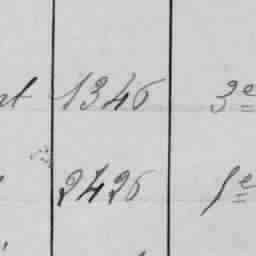 1346 3e
2426 1e